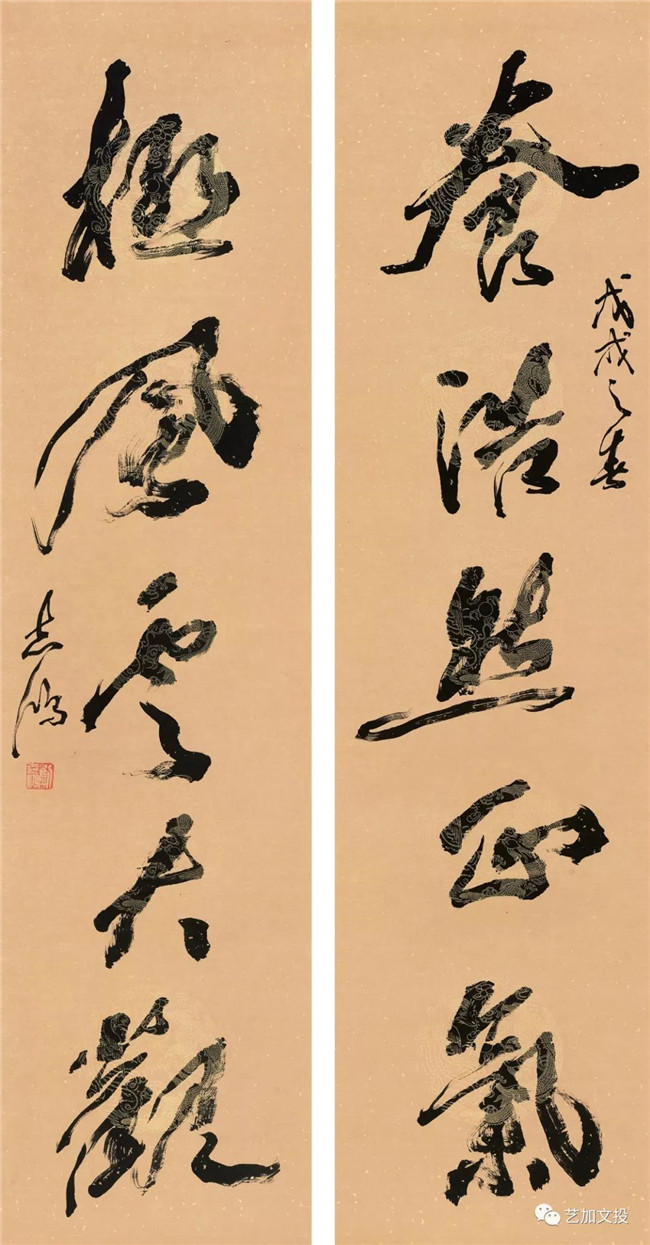 戊戌之春
養浩然正氣
極風雲大觀
志鴻
艺加文投